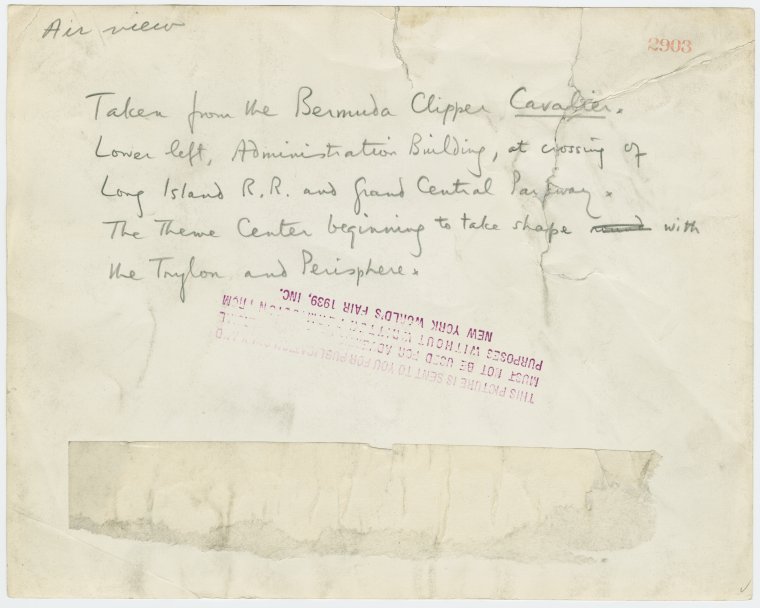 Air view
2903
Taken from the Bermuda Clipper Cavalier.
Lower left, Administration Building, at crossing of
Long Island R.R. and Grand Central Parkway.
The Theme Center beginning to take shape with
the Trylon and Perisphere.
THIS PICTURE IS SENT TO YOU FOR PUBLICATION ONLY AND
MUST NOT BE USED FOR
PURPOSES WITHOUT WRITTEN PERMISSION FROM
NEW YORK WORLD'S FAIR 1939, INC.